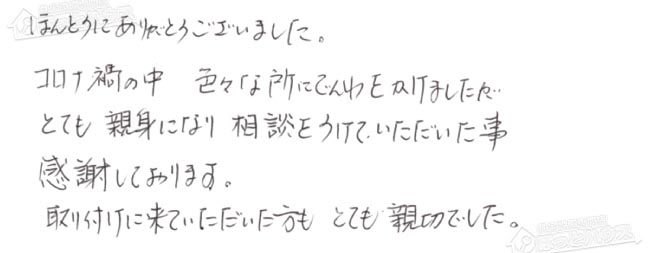 ほんとうにありがとうございました。
コロナ禍の中 色々な所にでんわをかけましたが
とても 親身になり 相談をうけていただいた事
感謝しております。
取り付けに来ていただいた方も とても 親切でした。